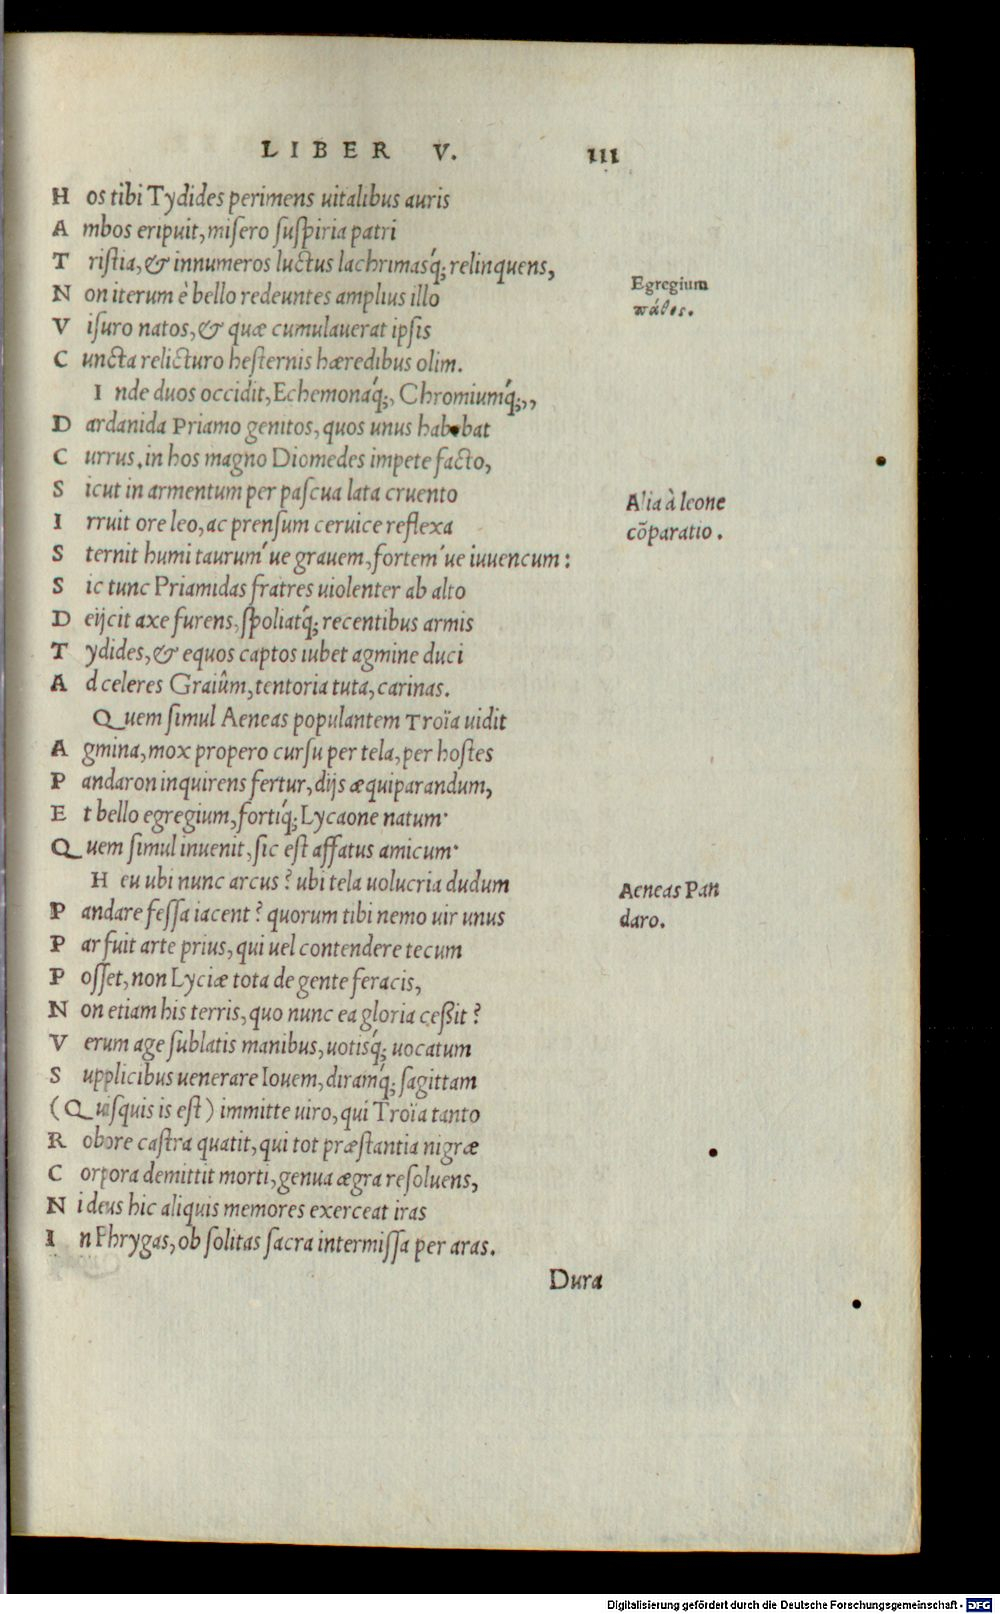 LIBER V. III
Hos tibi Tydides perimens uitalibus auris
Ambos eripuit, misero suspiria patri
Tristia, & innumeros luctus lachrimasq́; relinquens,
Egregium
Non iterum è bello redeuntes amplius illo
πάθος.
Visuro natos, & quæ cumulauerat ipsis
Cuncta relicturo hesternis hæredibus olim.
Inde duos occidit, Echemonaq́;, Chromiumq́;,,
Dardanida Priamo genitos, quos unus habebat
Currus, in hos magno Diomedes impete facto,
Sicut in armentum per pascua lata cruento
Alia à leone
Irruit ore leo, ac prensum ceruice reflexa
cõparatio.
Sternit humi taurum´ue grauem, fortem´ue iuuencum:
Sic tunc Priamidas fratres uiolenter ab alto
Deijcit axe furens, spoliatq́; recentibus armis
Tydides, & equos captos iubet agmine duci
Ad celeres Graiûm, tentoria tuta, carinas.
Quem simul Aeneas populantem Troïa uidit
Agmina, mox propero cursu per tela, per hostes
Pandaron inquirens fertur, dijs æquiparandum,
Et bello egregium, fortiq́; Lycaone natum.
Quem simul inuenit, sic est affatus amicum.
Heu ubi nunc arcus? ubi tela uolucria dudum
Aeneas Pan
Pandare fessa iacent? quorum tibi nemo uir unus
daro.
Par fuit arte prius, qui uel contendere tecum
Posset, non Lyciæ tota de gente feracis,
Non etiam his terris, quo nunc ea gloria ceßit?
Verum age sublatis manibus, uotisq́; uocatum
Supplicibus uenerare Iouem, diramq́; sagittam
(Quisquis is est) immitte uiro, qui Troïa tanto
Robore castra quatit, qui tot præstantia nigræ
Corpora demittit morti, genua ægra resoluens,
Ni deus hic aliquis memores exerceat iras
In Phrygas, ob solitas sacra intermissa per aras.
Dura
Digitalisierung gefördert durch die Deutsche Forschungsgemeinschaft - DFG